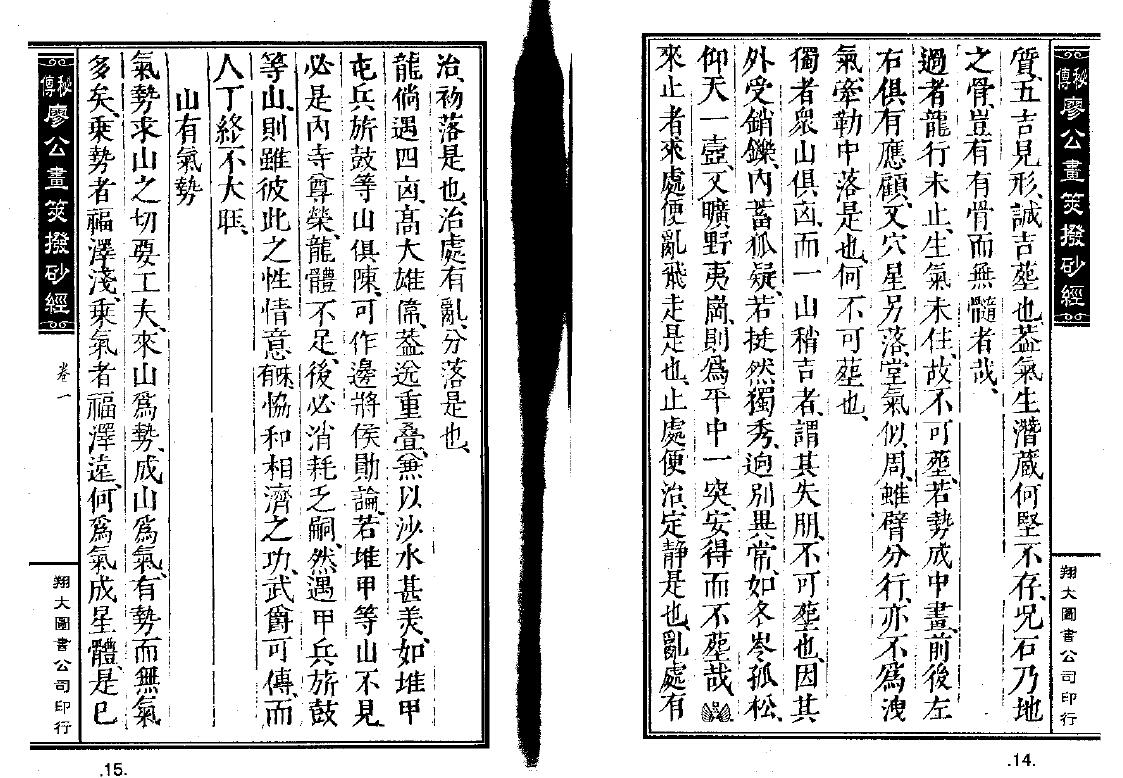 秘傳廖公畫筴撥砂經
翔大圖書公司印行
質、五吉見形、誠吉塟也、葢氣生潛藏何堅不存、况石乃地
之骨、豈有有骨而無髓者哉、
過者龍行未止、生氣未住、故不可塟、若勢成中畫、前後左
右俱有應顧、又穴星另落、堂氣似周、雖臂分行、亦不為洩
氣、牽勒中落是也、何不可塟也、
獨者衆山俱凶、而一山稍吉者、謂其失朋、不可塟也、因其
外受銷鑠、內蓄狐疑、若挺然獨秀、逈別異常、如冬岑孤松、
仰天一壼、又曠野夷崗、則爲平中一突、安得而不塟哉
來止者來處便亂飛走是也、止處便治、定静是也、亂處有
.14.
治、初落是也、治處有亂、分落是也、
龍倘遇四凶、高大雄偉、葢送重叠、兼以沙水甚美、如堆甲
屯兵旂鼓等山俱陳、可作邊將侯勛論、若堆甲等山不見
必是內寺尊榮、龍體不足、後必消耗乏嗣、然遇甲兵旂鼓
等山、則雖彼此之性情意秪恊和相濟之功、武爵可傳、而
人丁終不大旺、
山有氣勢
氣勢求山之切要工夫、來山爲勢、成山爲氣、有勢而無氣
多矣、乘勢者福澤淺、乘氣者福澤遠、何爲氣成星體、是已
秘傳廖公畫筴撥砂經
卷一
翔大圖書公司印行
.15.